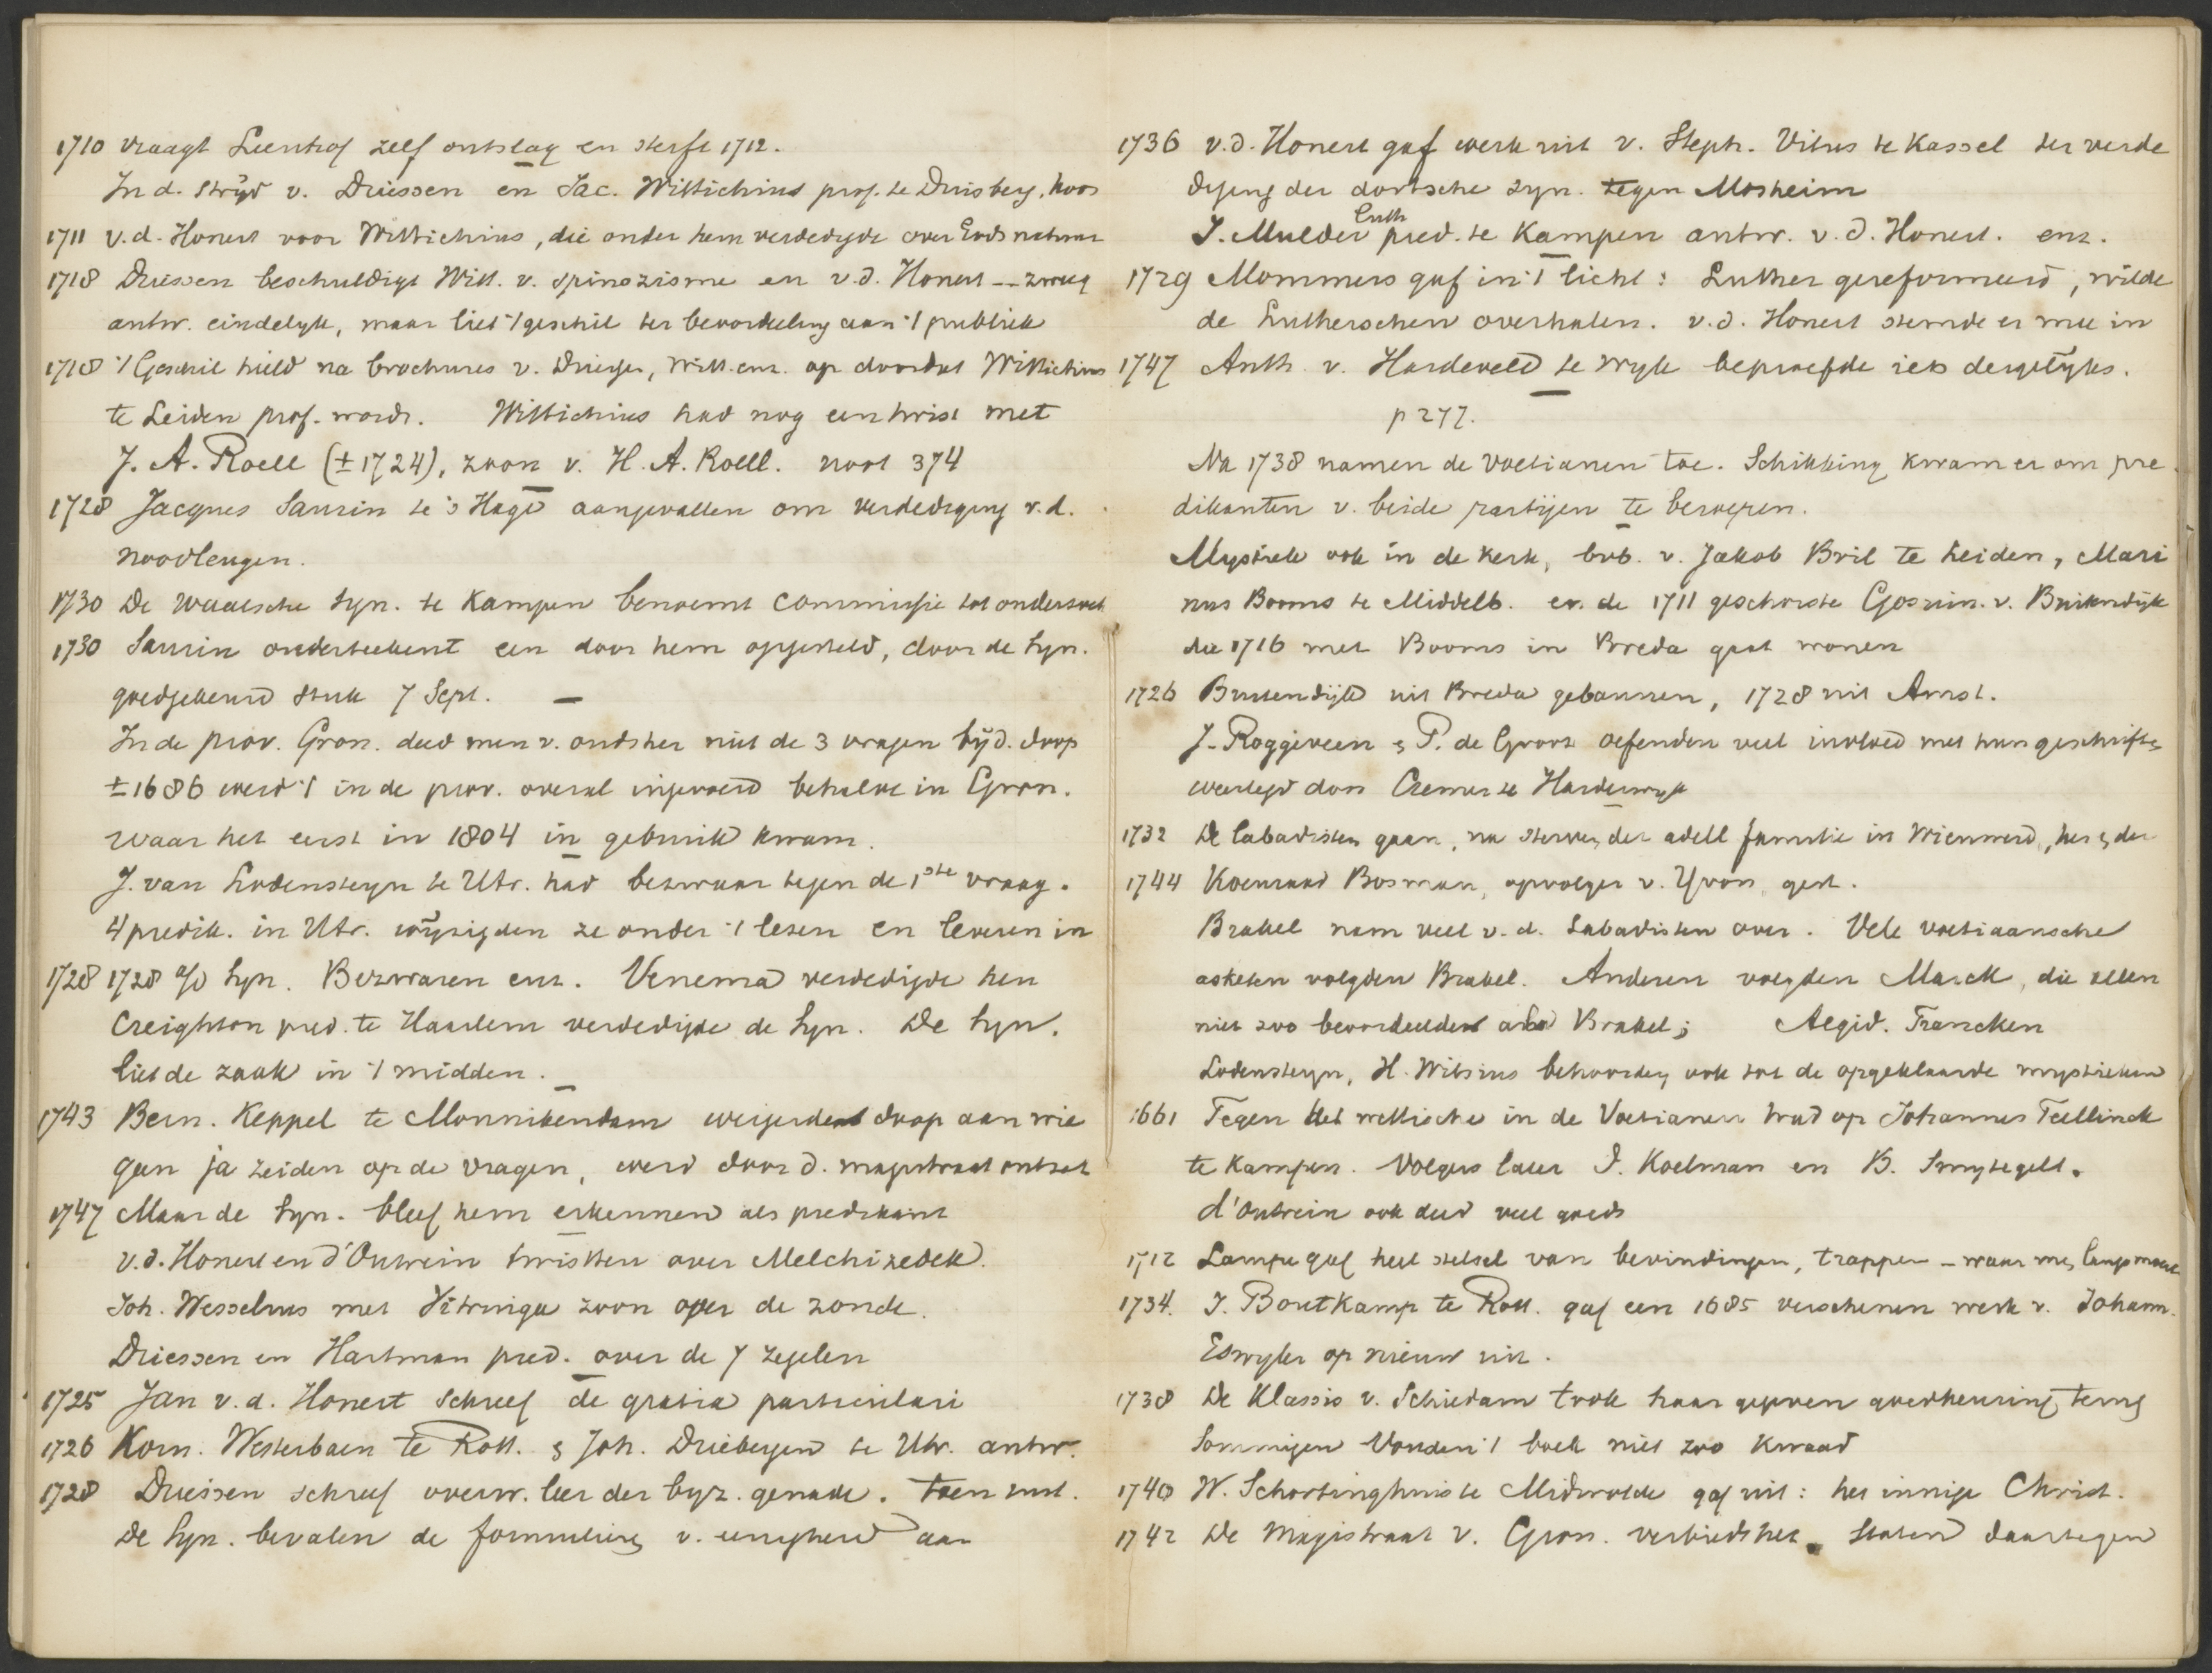 1710 vraagt Leenhof zelf ontslag en sterft 1712.
In d. strijd v. Driessen en Jac. Wittichius prof. te Duisberg, koos
1711 v.d. Honert voor Wittichius, die onder hem verdedigde over Gods natuur
1718 Driessen beschuldigt Witt. v. spinozisme en v.d. Honert -- zweeg
antw. eindelyk, maar liet 't geschil ter beoordeeling aan 't publiek
1718 't Geschil hield na brochures v. Driess, Witt. enz. op doordat Wittichius
te Leiden prof. wordt. Wittichius had nog een twist met
J. A. Roell (± 1724), zoon v. H. A. Roell. noot 374
1728 Jacques Saurin te 's Hage aangevallen om verdediging v.d.
noodleugen.
1730 De Waalsche Syn. te Kampen benoemt commissie tot onderzoek
1730 Saurin onderteekent een door hem opgesteld, door de Syn.
goedgekeurd stuk 7 Sept. —
In de prov. Gron. deed men v. oudsher niet de 3 vragen bijd. doop
± 1686 werd 't in de prov. overal ingevoerd behalve in Gron.
waar het eerst in 1804 in gebruik kwam.
J. van Lodensteyn te Utr. had bezwaar tegen de 1ste vraag.
4 predik. in Utr. wijzigden ze onder 't lezen en leveren in
1728 1728 o/d Syn. Bezwaren enz. Venema verdedigde hen
Creighton pred. te Haarlem verdedigde de Syn. De Syn.
liet de zaak in 't midden.
1743 Bern. Keppel te Monnikendam weigerde doop aan wie
geen ja zeiden op de vragen, werd door d. magistraat ontzet
1747 Maar de Syn. bleef hem erkennen als predikant
v.d. Honert en d'Outrein twistten over Melchizedek.
Joh. Wesselius met Vitringa zoon over de zonde.
Driessen en Hartman pred. over de 7 zegelen
1725 Jan v.d. Honert schreef de gratia particulari
1726 Korn. Westerbaen te Rott. & Joh. Drieberge te Utr. antw.
1728 Driessen schreef overw. leer der byz. genade. Toen rust.
De Syn. bevalen de formulieren v. eenigheid aan
1736 v.d. Honert gaf werk uit v. Steph. Vitus te Kassel ter verde
diging der dortsche syn. tegen Mosheim
J. Mulder Luth pred. te Kampen antw. v.d. Honert. enz.
1729 Mommers gaf in 't licht: Luther gereformeerd, wilde
de Lutherschen overhalen. v.d. Honert stemde er mee in
1747 Anth. v. Hardeveld te Wyk beproefde iets dergelijks.
p 277.
Na 1738 namen de Voetianen toe. Schikking kwam er om pre
dikanten v. beide partijen te beroepen.
Mystiek ook in de kerk, bvb. v. Jakob Bril te Leiden, Mari
nus Booms te Middelb. en de 1711 geschorste Goswin. v. Buitendijk
die 1716 met Booms in Breda gaat wonen
1726 Buitendijk uit Breda gebannen, 1728 uit Amst.
J. Roggeveen & P. de Groot oefenden veel invloed met hun geschriften
weerlegd door Cremer te Harderwyk
1732 De labadisten gaan, na sterven der adell familie in Wieuwerd,
1744 Koenraad Bosman, opvolger v. Yvon, gest.
Brakel nam veel v.d. Labadisten over. Vele voetiaansche
asketen volgden Brakel. Anderen volgden Marck, die allen
niet zoo beoordeelden als Brakel; Aegid. Francken
Lodensteyn, H. Witsius behoorden ook tot de opgeklaarde mystieken
1661 Tegen het wettische in de Voetianen trad op Johannes Teellinck
te Kampen. Volgers later J. Koelman en B. Smytegelt.
d'Outrein ook deed veel goeds
1712 Lampe gaf heel stelsel van bevindingen, trappen – waar men langs moest
1734. J. Boutkamp te Rott. gaf een 1685 verschenen werk v. Johann.
Eswyler op nieuw uit.
1738 De Klassis v. Schiedam trok haar gegeven goedkeuring terug
Sommigen vonden 't boek niet zoo kwaad
1740 W. Schortinghuis te Midwolde gaf uit: het innige Christ.
1742 De Magistraat v. Gron. verbiedt het. Staten daartegen